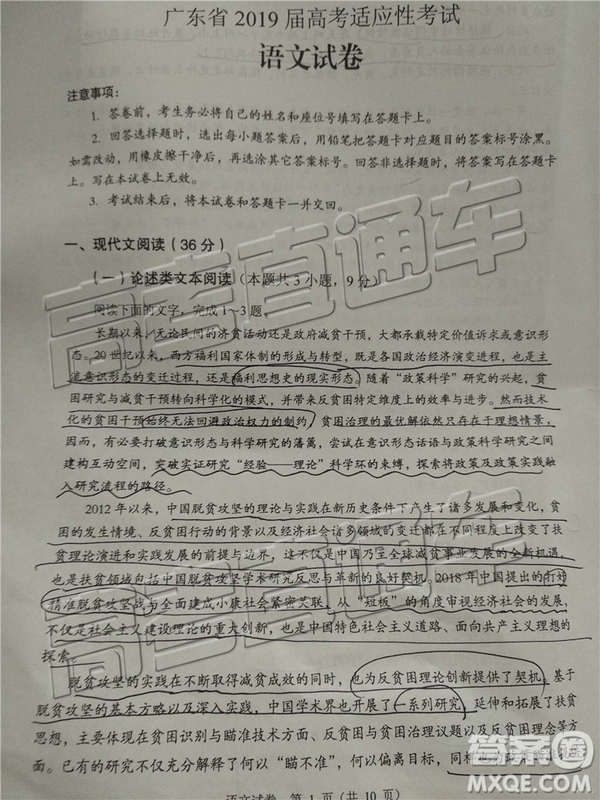 广东省 2019 届高考适应性考试
语文试卷
注意事项：
1. 答卷前，考生务必将自己的姓名和座位号填写在答题卡上。
2. 回答选择题时，选出每小题答案后，用铅笔把答题卡对应题目的答案标号涂黑。
如需改动，用橡皮擦干净后，再选涂其它答案标号。回答非选择题时，将答案写在答题卡
上。写在本试卷上无效。
3. 考试结束后，将本试卷和答题卡一并交回。
一、现代文阅读（36 分）
（一）论述类文本阅读（本题共 3 小题，9 分）
阅读下面的文字，完成 1～3 题。
长期以来，无论民间的济贫活动还是政府减贫干预，大都承载特定价值诉求或意识形
态。20 世纪以来，西方福利国家体制的形成与转型，既是各国政治经济演变进程，也是主
导意识形态的变迁过程，还是福利思想史的现实形态。随着“政策科学”研究的兴起，贫
困研究与减贫干预转向科学化的模式，并带来反贫困特定维度上的效率与进步。然而技术
化的贫困干预始终无法回避政治权力的制约，贫困治理的最优解依然只存在于理想情景，
因而，有必要打破意识形态与科学研究的藩篱，尝试在意识形态话语与政策科学研究之间
建构互动空间，突破实证研究“经验——理论”科学环的束缚，探索将政策及政策实践融
入研究流程的路径。
2012 年以来，中国脱贫攻坚的理论与实践在新历史条件下产生了诸多发展和变化，贫
困的发生情境、反贫困行动的背景以及经济社会诸多领域的变迁都在不同程度上改变了扶
贫理论演进和实践发展的前提与边界，这不仅是中国乃至全球减贫事业发展的全新机遇，
也是扶贫领域包括中国脱贫攻坚学术研究反思与革新的良好契机。2018 年中国提出的打好
精准脱贫攻坚战与全面建成小康社会紧密关联，从“短板”的角度审视经济社会的发展，
不仅是社会主义建设理论的重大创新，也是中国特色社会主义道路、面向共产主义理想的
探索。
脱贫攻坚的实践在不断取得减贫成效的同时，也为反贫困理论创新提供了契机。基于
脱贫攻坚的基本方略以及深入实践，中国学术界也开展了一系列研究，延伸和拓展了扶贫
思想，主要体现在贫困识别与瞄准技术方面、反贫困与贫困治理议题以及反贫困理念等方
面。已有的研究不仅充分解释了何以“瞄不准”，何以偏离目标，同样
语文试卷 第 1 页（共 10 页）
高考直通车
高考直通车
答案圈
MXQE.COM